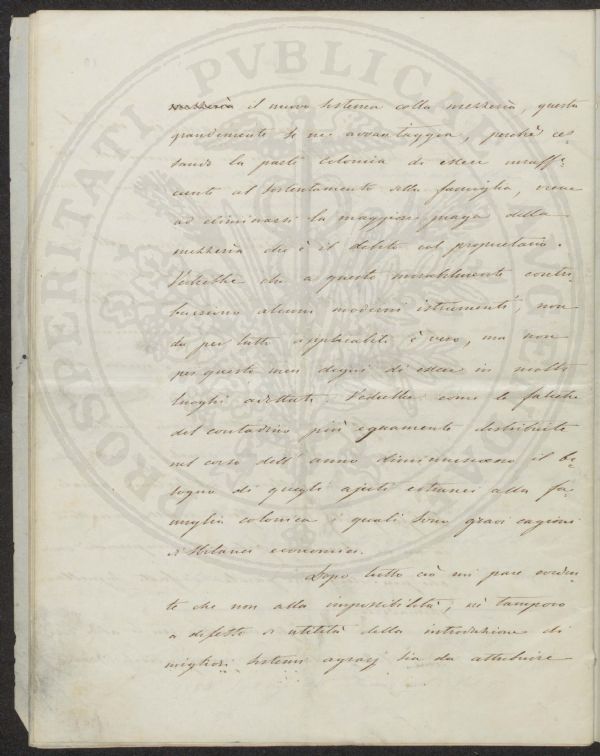 mezzeria il nuovo sistema colla mezzeria, questa
grandemente se ne avvantaggia, perchè ces-
sando la parte colonica di essere insuffi-
ciente al sostentamento della famiglia, viene
ad eliminarsi la maggiore piaga della
mezzeria che è il debito col proprietario.
Vedrebbe che a questo mirabilmente contri-
buiscono alcuni moderni istrumenti, non
da per tutto applicabili è vero, ma non
per questo men degni di essere in molti
luoghi adottati. Vedrebbe come le fatiche
del contadino più equamente distribuite
nel corso dell' anno diminuiscono il bi-
sogno di quegli ajuti estranei alla fa-
miglia colonica i quali sono gravi cagioni
di sbilanci economici.
Dopo tutto ciò mi pare eviden-
te che non alla impossibilità, nè tampoco
a difetto di utilità della introduzione di
migliori sistemi agrarj sia da attribuire
PROSPERITATI PVBLICAE AVGENDAE